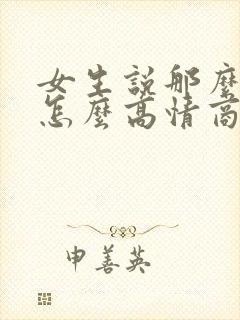 女生說那麼
怎麼高情商
申善英